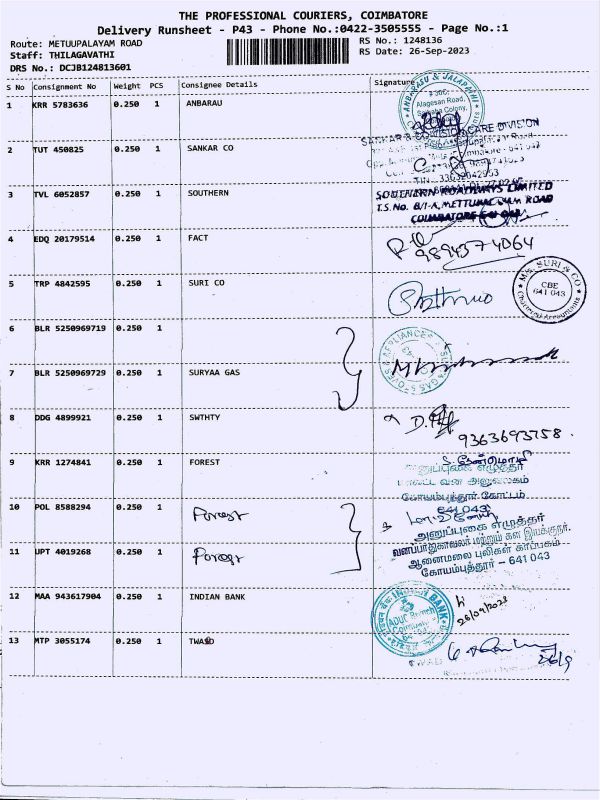 THE PROFESSIONAL COURIERS, COIMBATORE
Delivery Runsheet - P43 - Phone No.:0422-3505555 - Page No.:1
Route: METUUPALAYAM ROAD
Staff: THILAGAVATHI
DRS No.: DCJB124813601
RS No.: 1248136
RS Date: 26-Sep-2023
S No Consignment No Weight PCS Consignee Details Signature
1 KRR 5783636 0.250 1 ANBARAU
ANBARASU & JALAPATHI
Alagesan Road,
Saibaba Colony,
2 TUT 450825 0.250 1 SANKAR CO
VISION CARE DIVISION
3 TVL 6052857 0.250 1 SOUTHERN
SOUTHERN ROADWAYS LIMITED
T.S.No. 8/1-A, METTUPALAYAM ROAD
COIMBATORE-641 043
4 EDQ 20179514 0.250 1 FACT
9894374064
5 TRP 4842595 0.250 1 SURI CO
M/s. SURI & CO
CBE
641 043
Chartered Accountants
6 BLR 5250969719 0.250 1
7 BLR 5250969729 0.250 1 SURYAA GAS
SURYA GAS STOVES & APPLIANCES
8 DDG 4899921 0.250 1 SWTHTY
9363693758.
9 KRR 1274841 0.250 1 FOREST
அனுப்புகை எழுத்தர்
மாவட்ட வன அலுவலகம்
கோயம்புத்தூர் கோட்டம்
641 043
10 POL 8588294 0.250 1 Forest
அனுப்புகை எழுத்தர்
வனப்பாதுகாவலர் மற்றும் கள இயக்குநர்,
11 UPT 4019268 0.250 1 Forest
ஆனைமலை புலிகள் காப்பகம்
கோயம்புத்தூர் - 641 043
12 MAA 943617904 0.250 1 INDIAN BANK
INDIAN BANK
26/09/2023
13 MTP 3055174 0.250 1 TWAD
26/9
TWAD